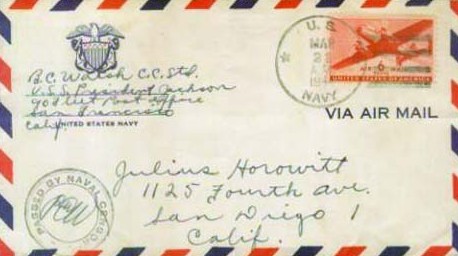 B.C. Walsh C.C. Std.
U.S.S. President Jackson
℅ Fleet Post Office
San Francisco
Calif.
UNITED STATES NAVY
U.S.
MAR
NAVY
6
UNITED STATES OF AMERICA
VIA AIR MAIL
Julius Horowitt
1125 Fourth ave.
San Diego 1
Calif.
PASSED BY NAVAL CENSOR